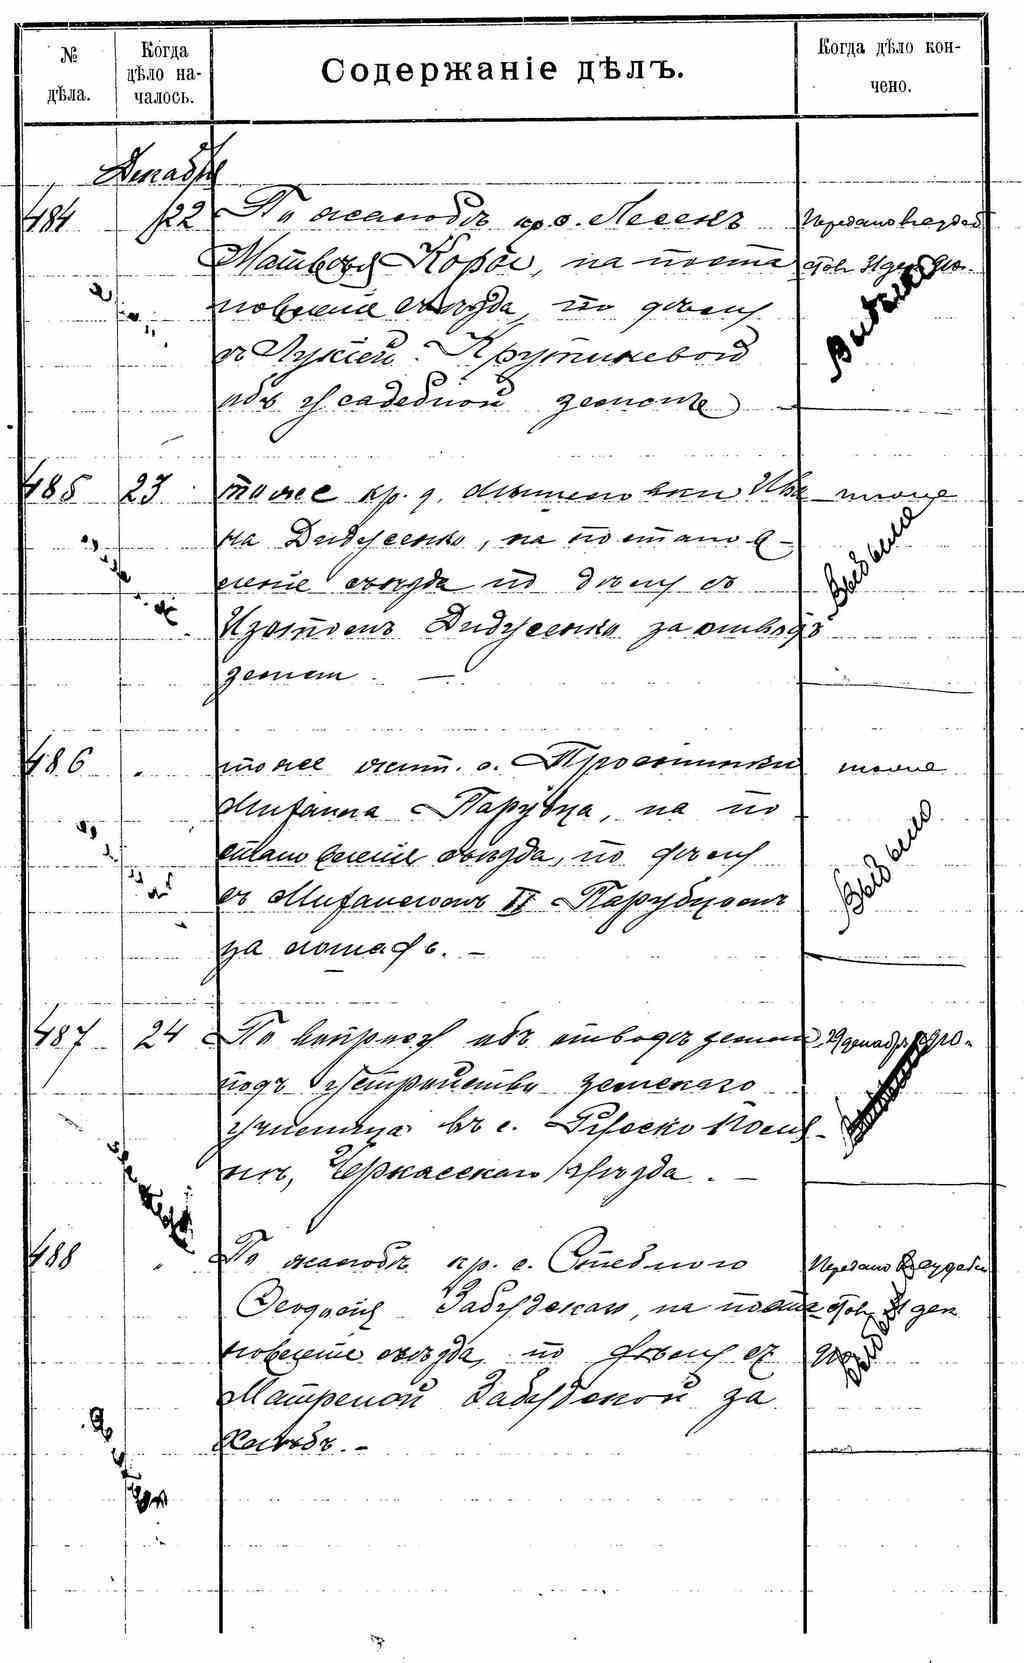 № дѣла.
Когда дѣло на-
чалось.
Содержаніе дѣлъ.
Когда дѣло кон-
чено.
Декабря
484 22 По жалобѣ кр. с. Лесекъ
Матвѣя Корсы, на поста
новленіе съѣзда, по дѣлу
съ Лукіей Крутиневой
объ усадебной землѣ
Передано
31 дек. 910.
Выбыло
485 23 тоже кр. д. Ива
на Дидусенко, на постанов-
леніе съѣзда по дѣлу съ
Изотомъ Дидусенко за отводъ
земли. —
тоже
Выбыло
486 " тоже жит. с. Тростинки
Михаила Парубца, на по
становленіе съѣзда, по дѣлу
съ Михаиломъ II Парубцомъ
за лошадь. —
тоже
Выбыло
487 24 По вопросу объ отводѣ земли
подъ устройство земскаго
училища въ с. Русской Поля-
нѣ, Черкасскаго уѣзда. —
29 декабря 910.
488 " По жалобѣ кр. с. Стебнаго
Феодосія Забудскаго, на поста
новленіе съѣзда, по дѣлу съ
Матреной Забудской за
хлѣбъ. —
Передано
31 дек
910
Выбыло